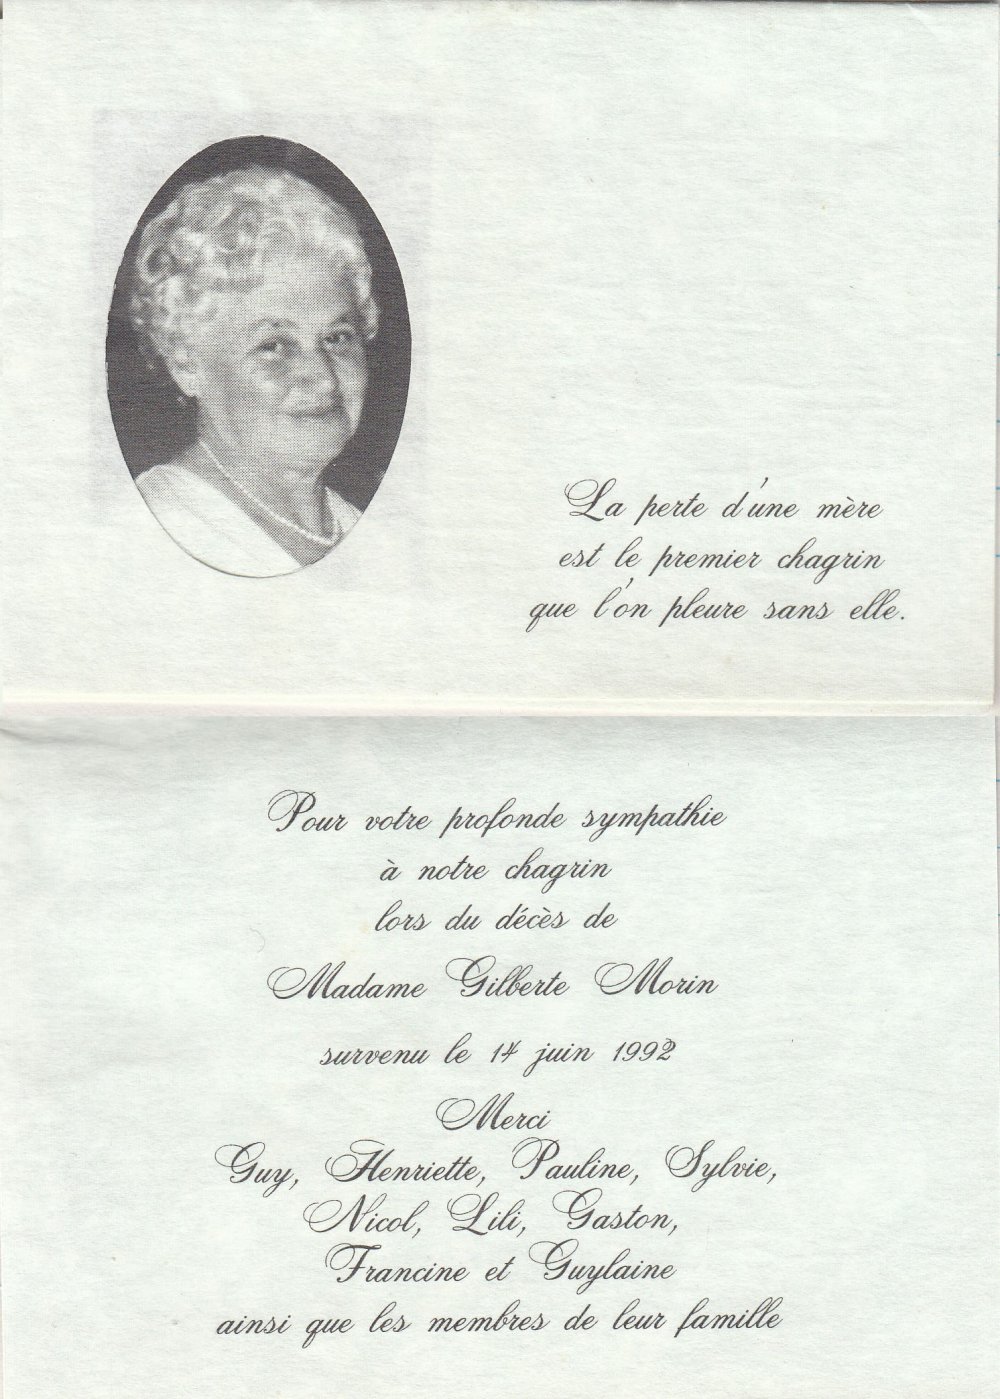 La perte d'une mère
est le premier chagrin
que l'on pleure sans elle.
Pour votre profonde sympathie
à notre chagrin
lors du décès de
Madame Gilberte Morin
survenu le 14 juin 1992
Merci
Guy, Henriette, Pauline, Sylvie,
Nicol, Lili, Gaston,
Francine et Guylaine
ainsi que les membres de leur famille